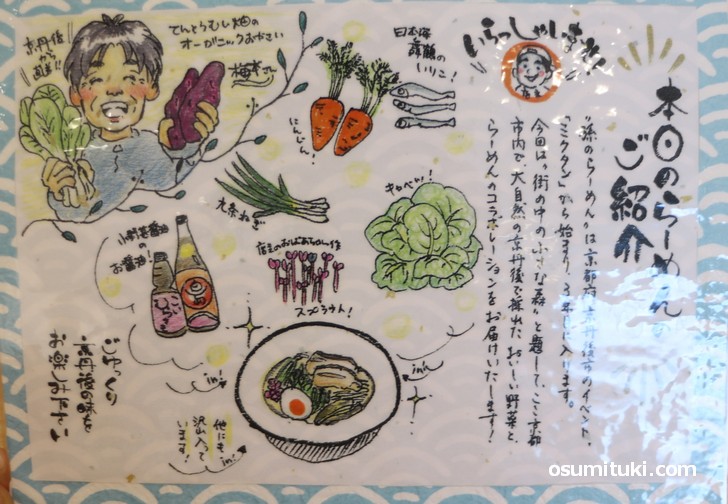 いらっしゃいませ!
本日のらーめんの
ご紹介
"添のらーめん"は京都府京丹後市のイベント、
「ミクタン」から始まり、3年目に入ります。
今回は"街の中の小さな森"と題して、ここ京都
市内で、大自然の京丹後で採れたおいしい野菜と、
らーめんのコラボレーションをお届けいたします!
京丹後
から
直送!!
てんとうむし畑の
オーガニックおやさい
梅本さん
日本海
舞鶴の
いりこ!
にんじん!
九条ねぎ
キャベツ!
小野甚醤油
の
お醤油!
店主のおばあちゃん作
スプラウト!
in!
in!
in!
他にも
沢山入って
います!
ごゆっくり
京丹後の味を
お楽しみ下さい
osumituki.com